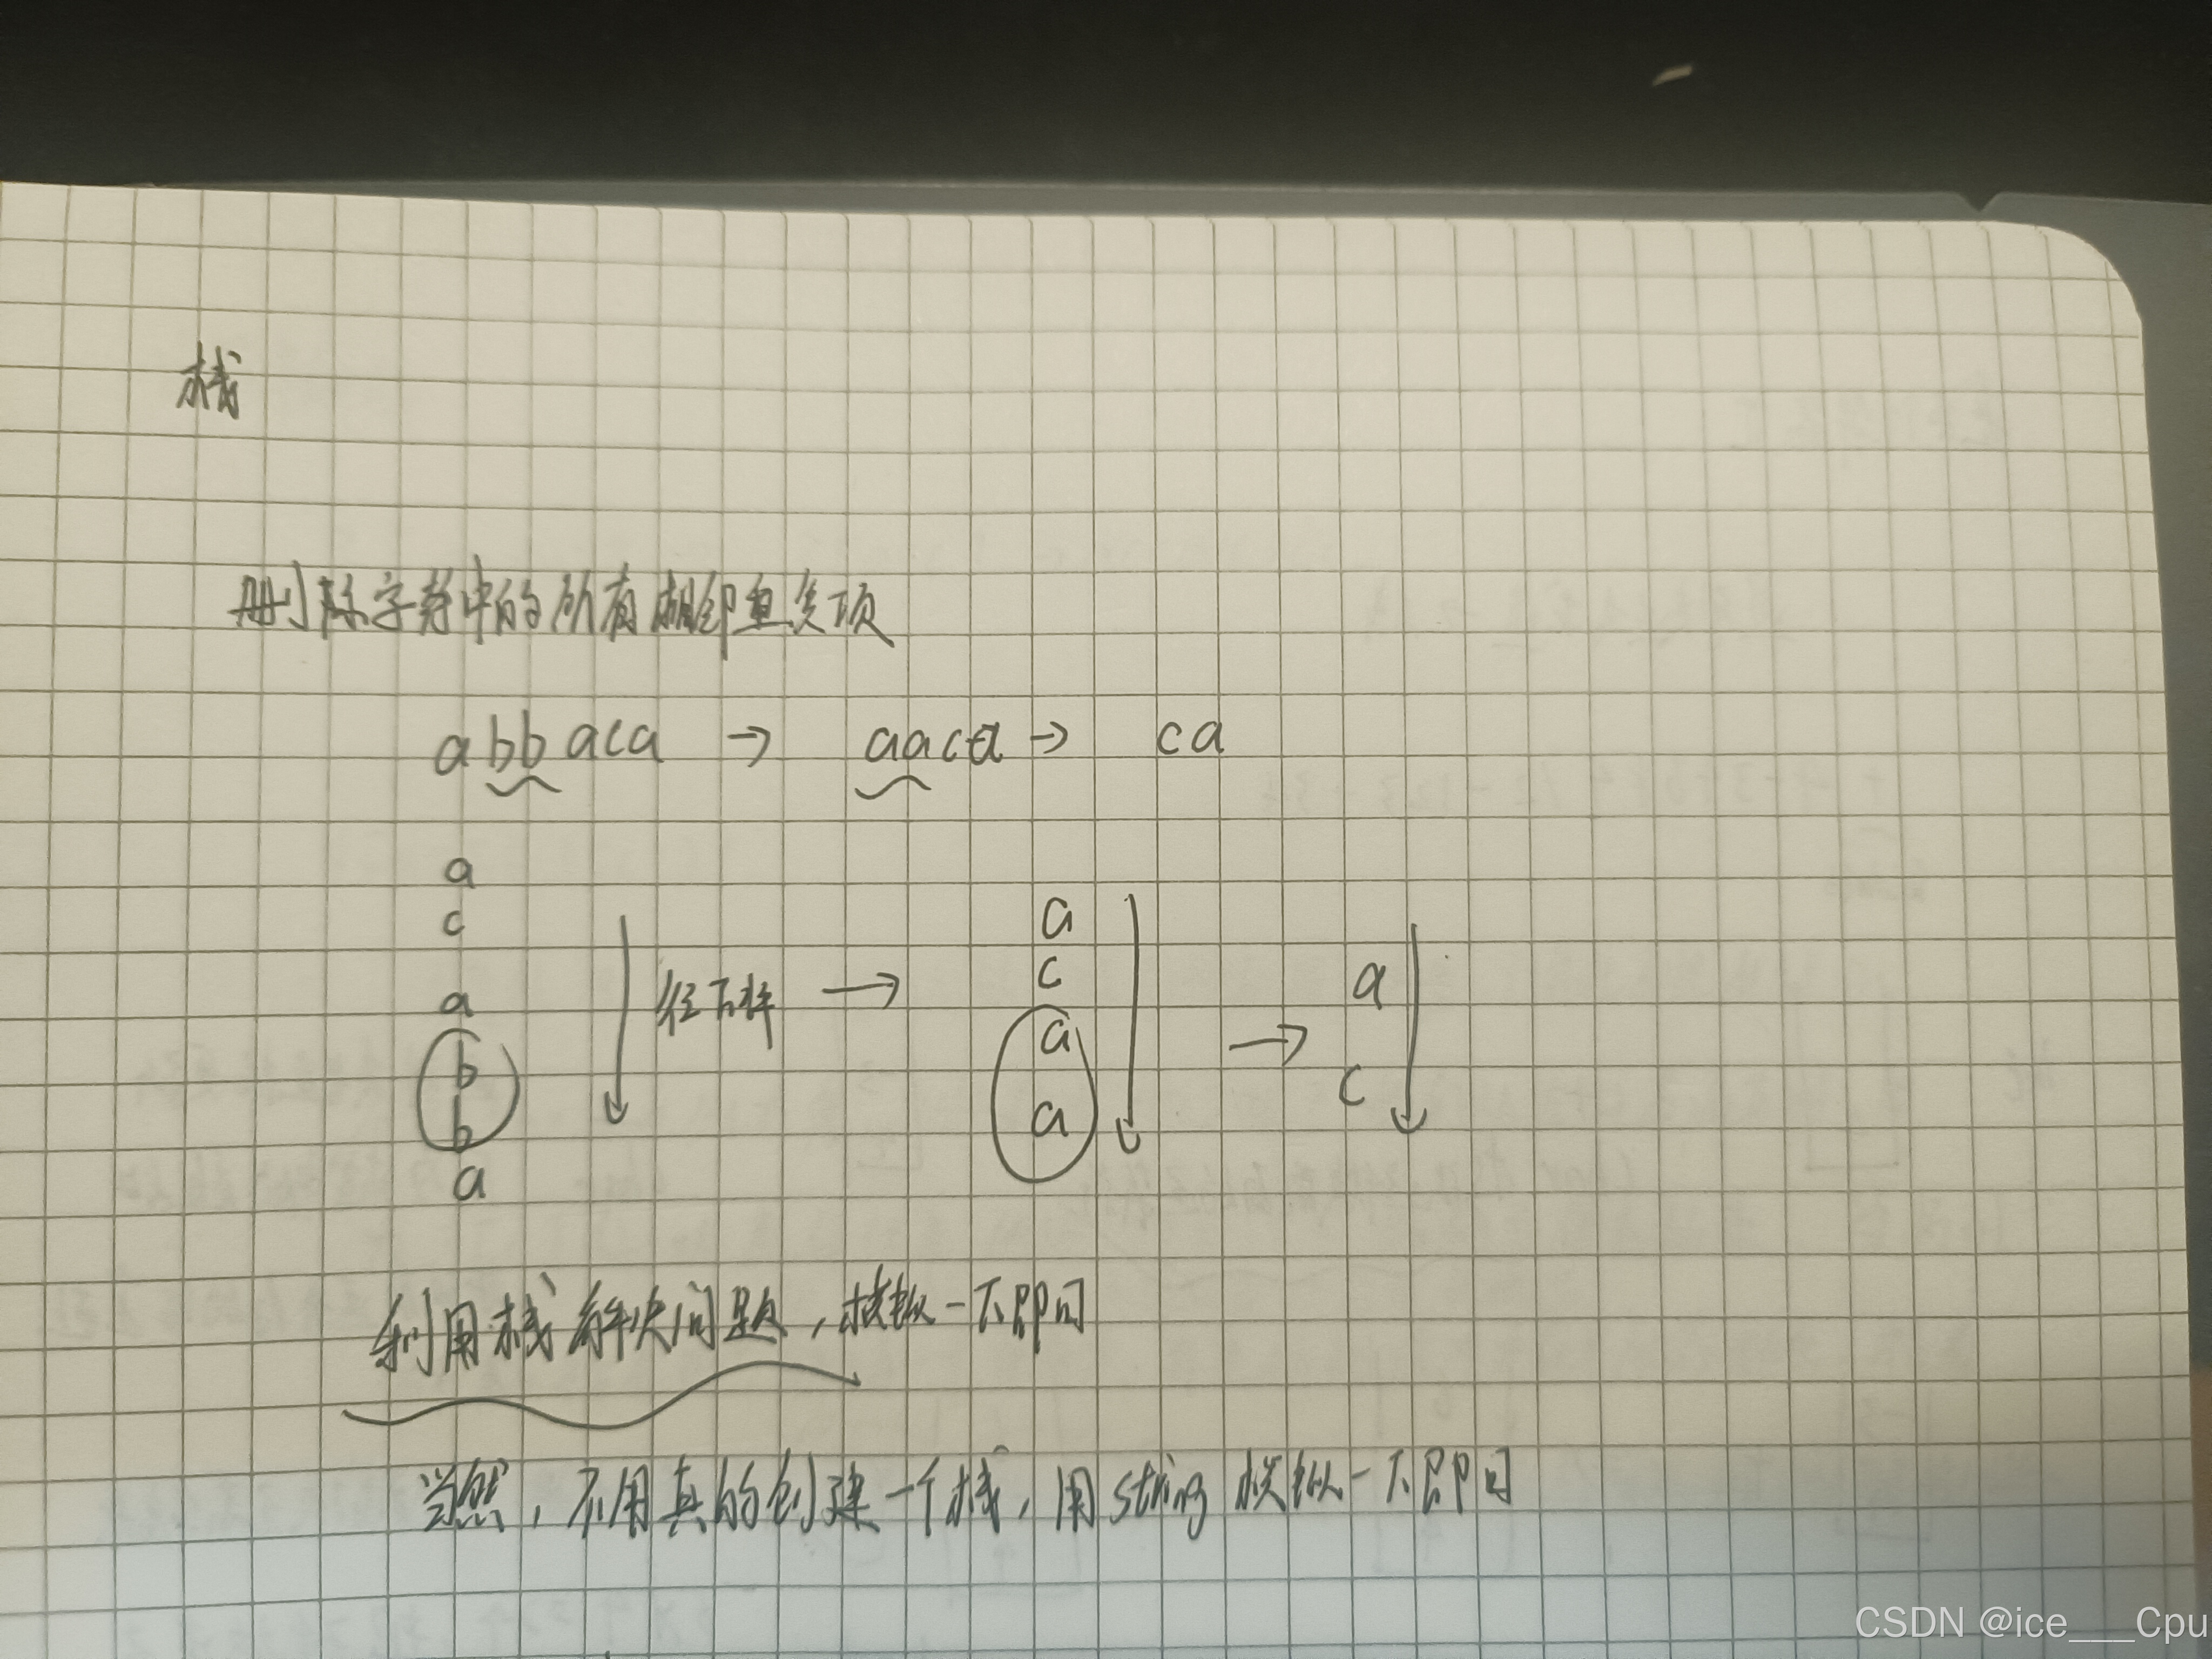 栈
删除字符串中的所有相邻重复项
abbaca → aaca → ca
a
c
a
b
b
a
往下掉 →
a
c
a
a
→
a
c
利用栈解决问题，模拟一下即可
当然，不用真的创建一个栈，用string模拟一下即可
CSDN @ice___Cpu